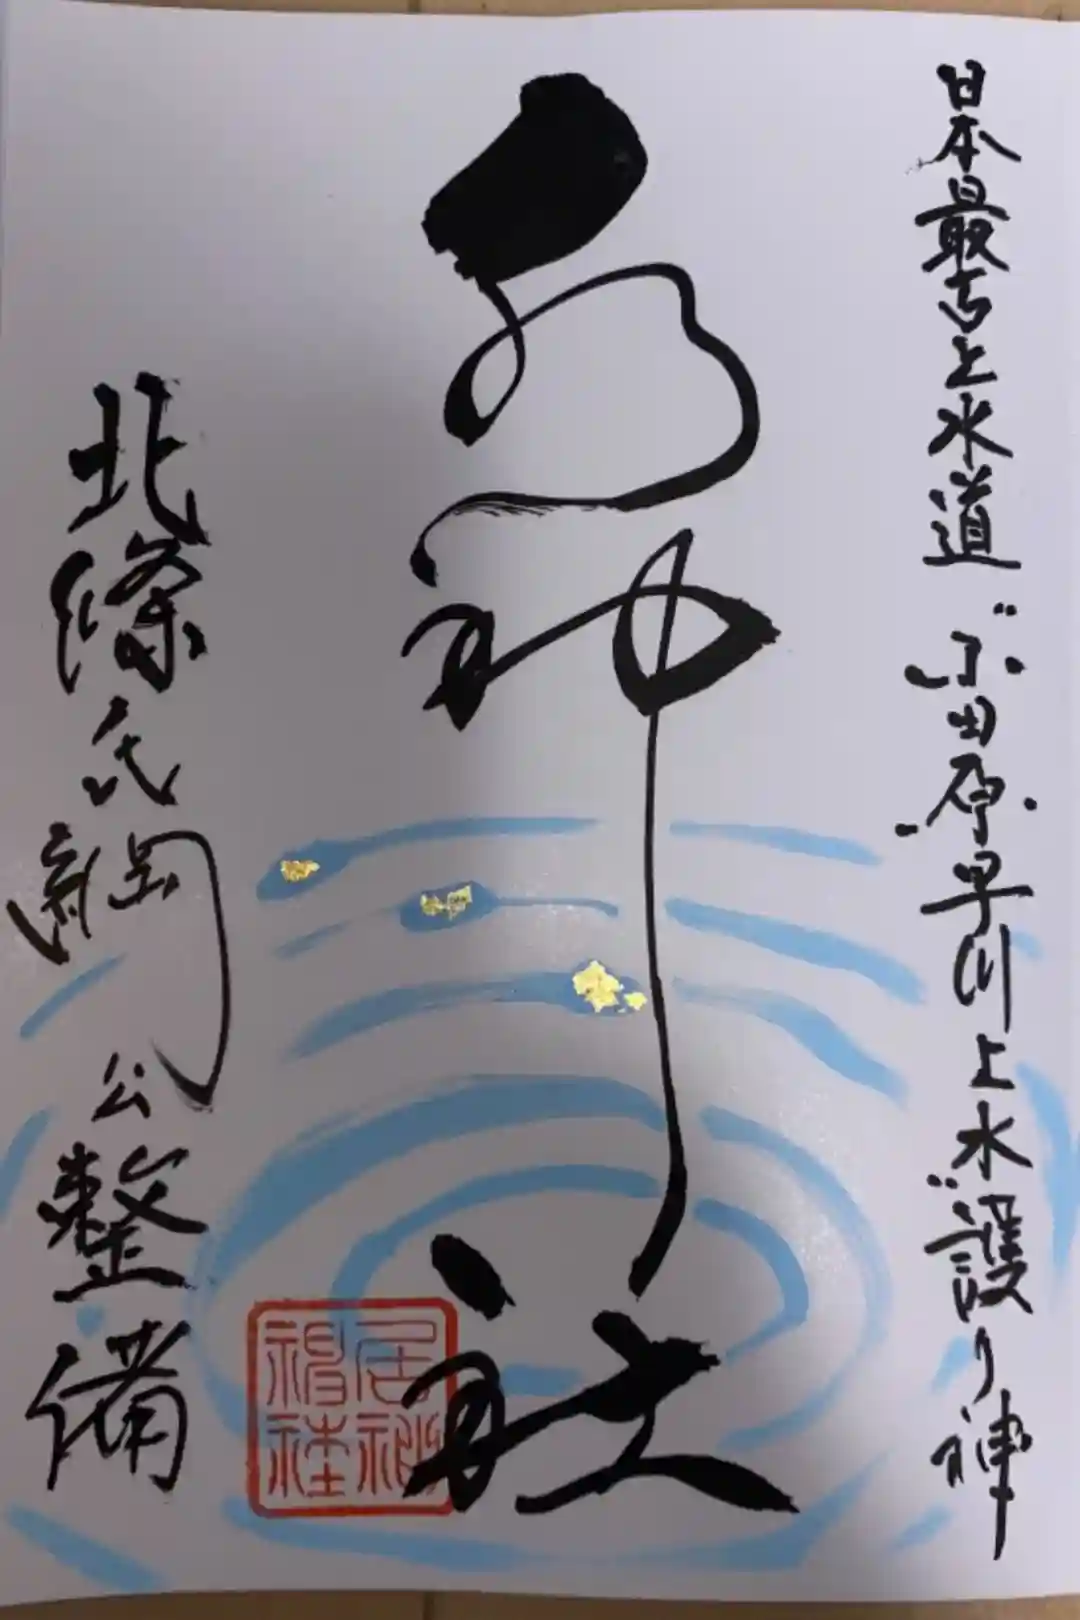 日本最古上水道 小田原早川上水護り神
水神社
北條氏綱公整備
居神神社